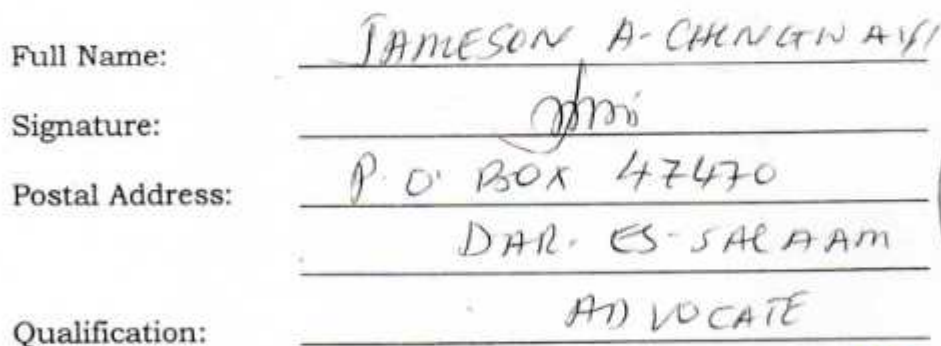 Full Name: JAMESON A- CHENGWAYI
Signature:
Postal Address: P.O. BOX 47470
DAR-ES-SALAAM
Qualification: ADVOCATE